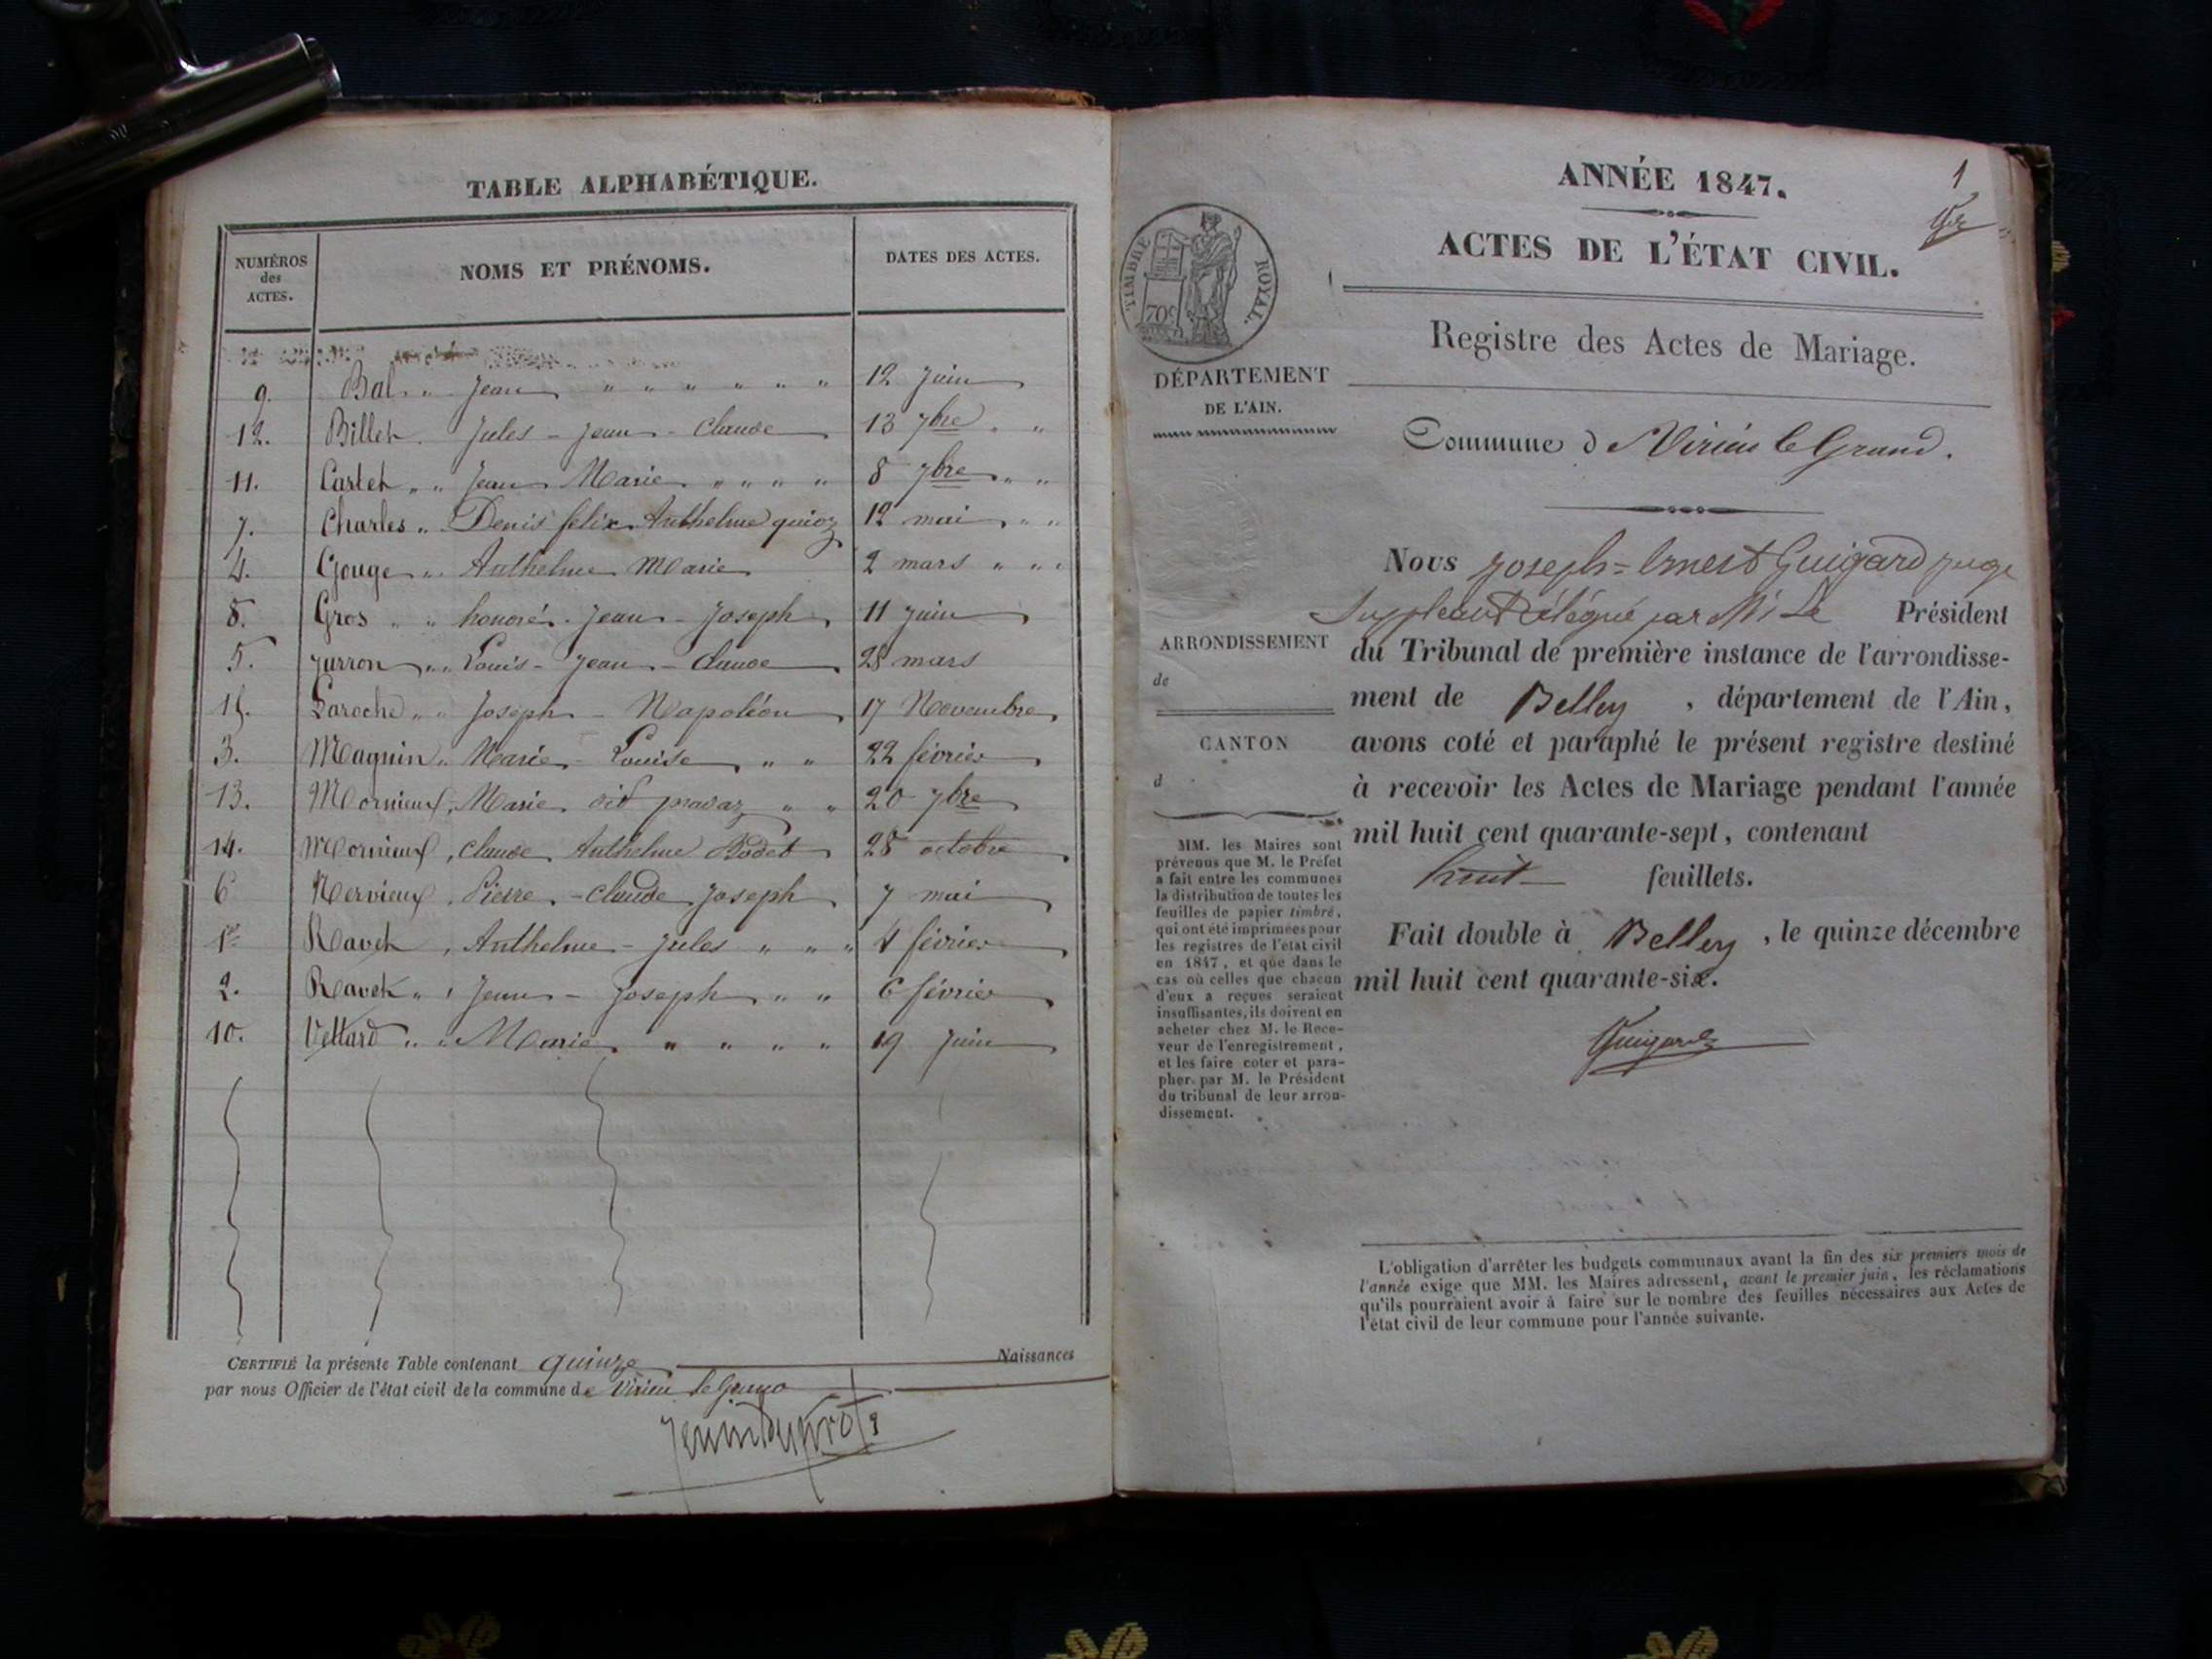 TABLE ALPHABÉTIQUE.
NUMÉROS des ACTES. NOMS ET PRÉNOMS. DATES DES ACTES.
9. Bal " Jean " " " " " " 12 juin
12. Billet. Jules - Jean - Claude 13 7bre " "
11. Castet " " Jean Marie " " " " 8 7bre " "
7. Charles " Denis felix Anthelme quioz 12 mai " "
4. Gouge " Anthelme Marie 2 mars " " "
8. Gros " " honoré - Jean - Joseph 11 juin
5. Jurron " " Louis - Jean - Claude 28 mars
15. Laroche " " Joseph - Napoléon 17 Novembre
3. Magnin " Marie - Louise " " 22 février
13. Mornieux, Marie dit pravaz " " 20 7bre
14. Mornieux, Claude Anthelme Bodet 28 octobre
6 Nervieux, Pierre - Claude Joseph 7 mai
1er Ravet, Anthelme - Jules " " " 4 février
2. Ravet " , Jean - Joseph " " 6 février
10. Vettard " " Marie " " " " 19 juin
CERTIFIÉ la présente Table contenant quinze Naissances
par nous Officier de l'état civil de la commune de Virieu le Grand
1
ANNÉE 1847.
ACTES DE L'ÉTAT CIVIL.
TIMBRE ROYAL.
70c
Registre des Actes de Mariage.
DÉPARTEMENT
DE L'AIN.
Commune d Virieu le Grand.
Nous Joseph = Ernest Guigard juge
Suppléant Délégué par Mr Le Président
ARRONDISSEMENT
de
du Tribunal de première instance de l'arrondisse-
ment de Belley , département de l'Ain,
CANTON
d
avons coté et paraphé le présent registre destiné
à recevoir les Actes de Mariage pendant l'année
mil huit cent quarante-sept, contenant
huit feuillets.
Fait double à Belley , le quinze décembre
mil huit cent quarante-six.
Guigard
MM. les Maires sont
prévenus que M. le Préfet
a fait entre les communes
la distribution de toutes les
feuilles de papier timbré,
qui ont été imprimées pour
les registres de l'état civil
en 1847, et que dans le
cas où celles que chacun
d'eux a reçues seraient
insuffisantes, ils doivent en
acheter chez M. le Rece-
veur de l'enregistrement,
et les faire coter et para-
pher par M. le Président
du tribunal de leur arron-
dissement.
L'obligation d'arrêter les budgets communaux avant la fin des six premiers mois de
l'année exige que MM. les Maires adressent, avant le premier juin, les réclamations
qu'ils pourraient avoir à faire sur le nombre des feuilles nécessaires aux Actes de
l'état civil de leur commune pour l'année suivante.